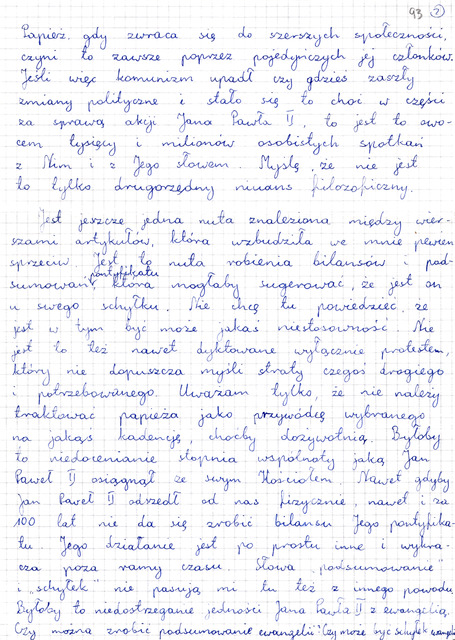 93 2
Papież, gdy zwraca się do szerszych społeczności,
czyni to zawsze poprzez pojedyńczych jej członków.
Jeśli więc komunizm upadł czy gdzieś zaszły
zmiany polityczne i stało się to choć w części
za sprawą akcji Jana Pawła II, to jest to owo-
cem tysięcy i milionów osobistych spotkań
z Nim i z Jego słowem. Myślę, że nie jest
to tylko drugorzędny niuans filozoficzny.
Jest jeszcze jedna nuta znaleziona między wier-
szami artykułów, która wzbudziła we mnie pewien
sprzeciw. Jest to nuta robienia bilansów i pod-
sumowań pontyfikatu, która mogłaby sugerować, że jest on
u swego schyłku. Nie chcę tu powiedzieć, że
jest w tym być może jakaś niestosowność. Nie
jest to też nawet dyktowane wyłącznie protestem,
który nie dopuszcza myśli straty czegoś drogiego
i potrzebowanego. Uważam tylko, że nie należy
traktować papieża jako przywódcę wybranego
na jakąś kadencję, choćby dożywotnią. Byłoby
to niedocenianie stopnia wspólnoty jaką Jan
Paweł II osiągnął ze swym Kościołem. Nawet gdyby
Jan Paweł II odszedł od nas fizycznie, nawet i za
100 lat nie da się zrobić bilansu Jego pontyfika-
tu. Jego działanie jest po prostu inne i wykra-
cza poza ramy czasu. Słowa „podsumowanie”
i „schyłek” nie pasują mi tu też z innego powodu.
Byłoby to niedostrzeganie jedności Jana Pawła II z ewangelią.
Czy można zrobić podsumowanie ewangelii? Czy może być schyłek